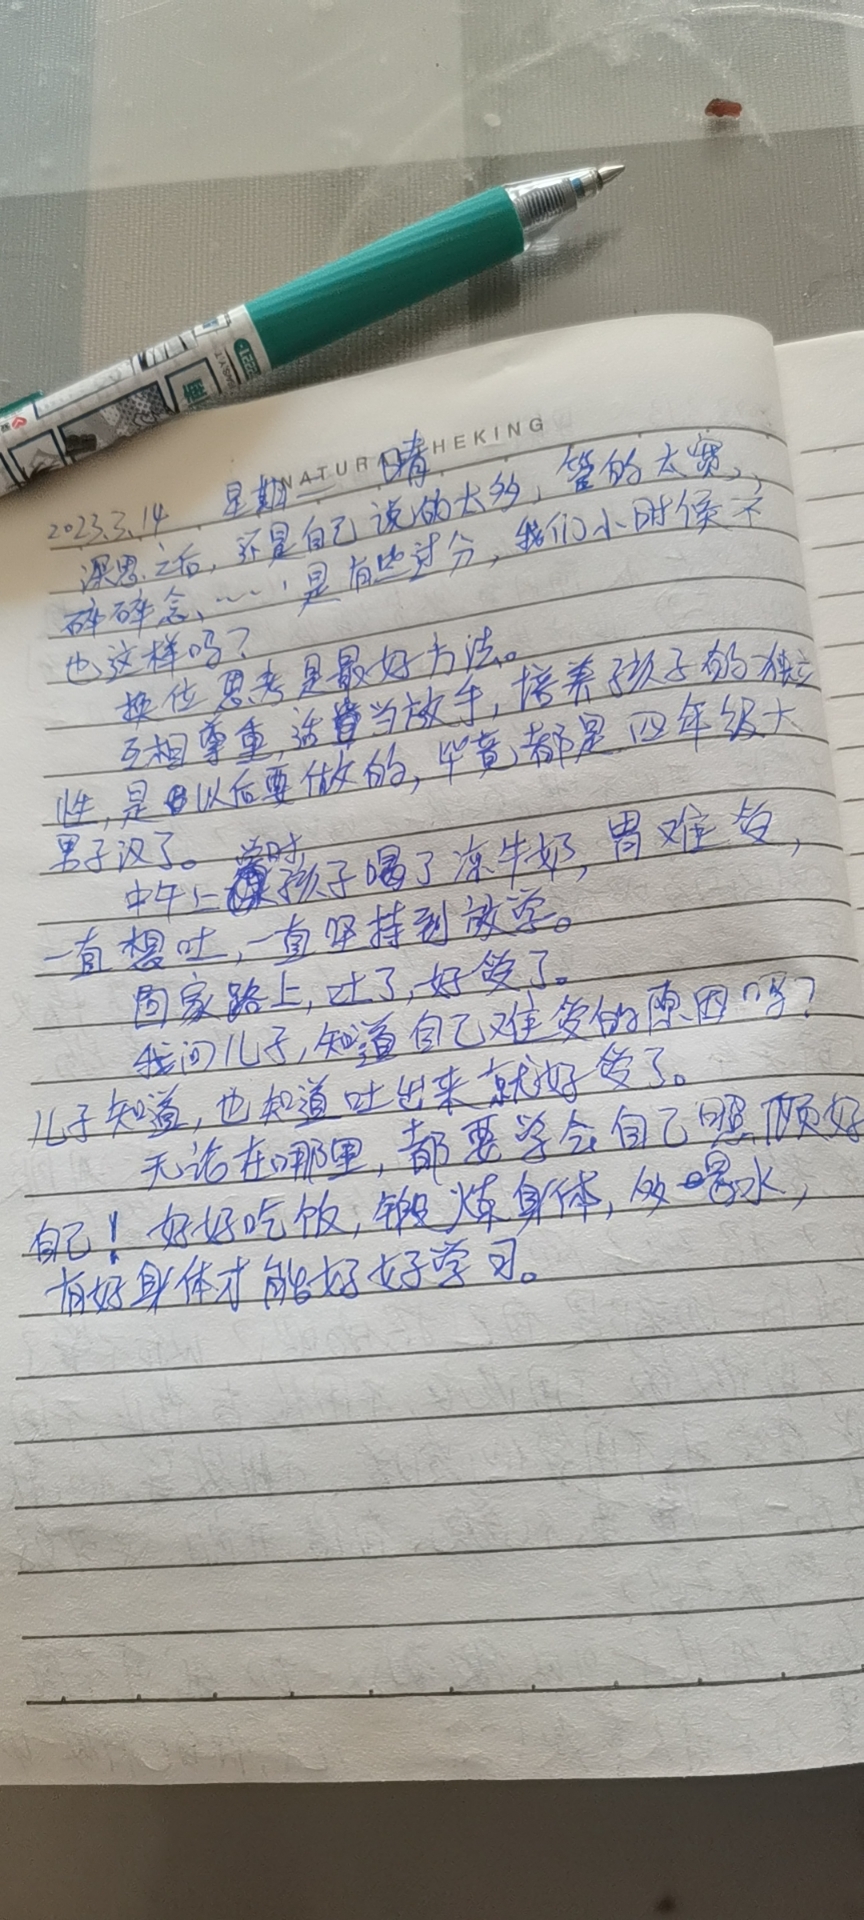 NATUR HEKING
2023.3.14 星期二 晴
深思之后，还是自己说的太多，管的太宽，
碎碎念、……，是有些过分，我们小时候不
也这样吗？
换位思考是最好方法。
互相尊重，适当放手，培养孩子的独立
性，是以后要做的，毕竟都是四年级大
男子汉了。
中午上学时孩子喝了冻牛奶，胃难受，
一直想吐，一直坚持到放学。
回家路上，吐了，好受了。
我问儿子，知道自己难受的原因吗？
儿子知道，也知道吐出来就好受了。
无论在哪里，都要学会自己照顾好
自己！好好吃饭，锻炼身体，多喝水，
有好身体才能好好学习。